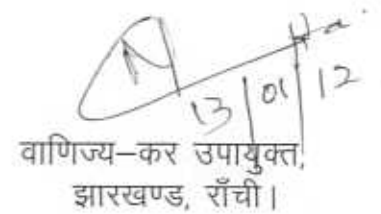 13/01/12
वाणिज्य–कर उपायुक्त,
झारखण्ड, राँची।